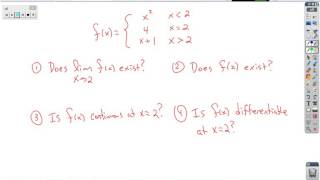 f(x) = { x² x < 2
4 x = 2
x + 1 x > 2
① Does lim x→2 f(x) exist?
② Does f(2) exist?
③ Is f(x) continuous at x = 2?
④ Is f(x) differentiable
at x = 2?